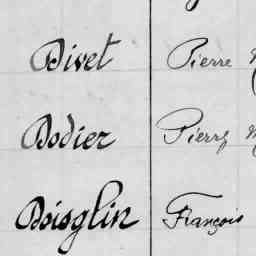 Divet Pierre
Dodier Pierre
Doisglin François